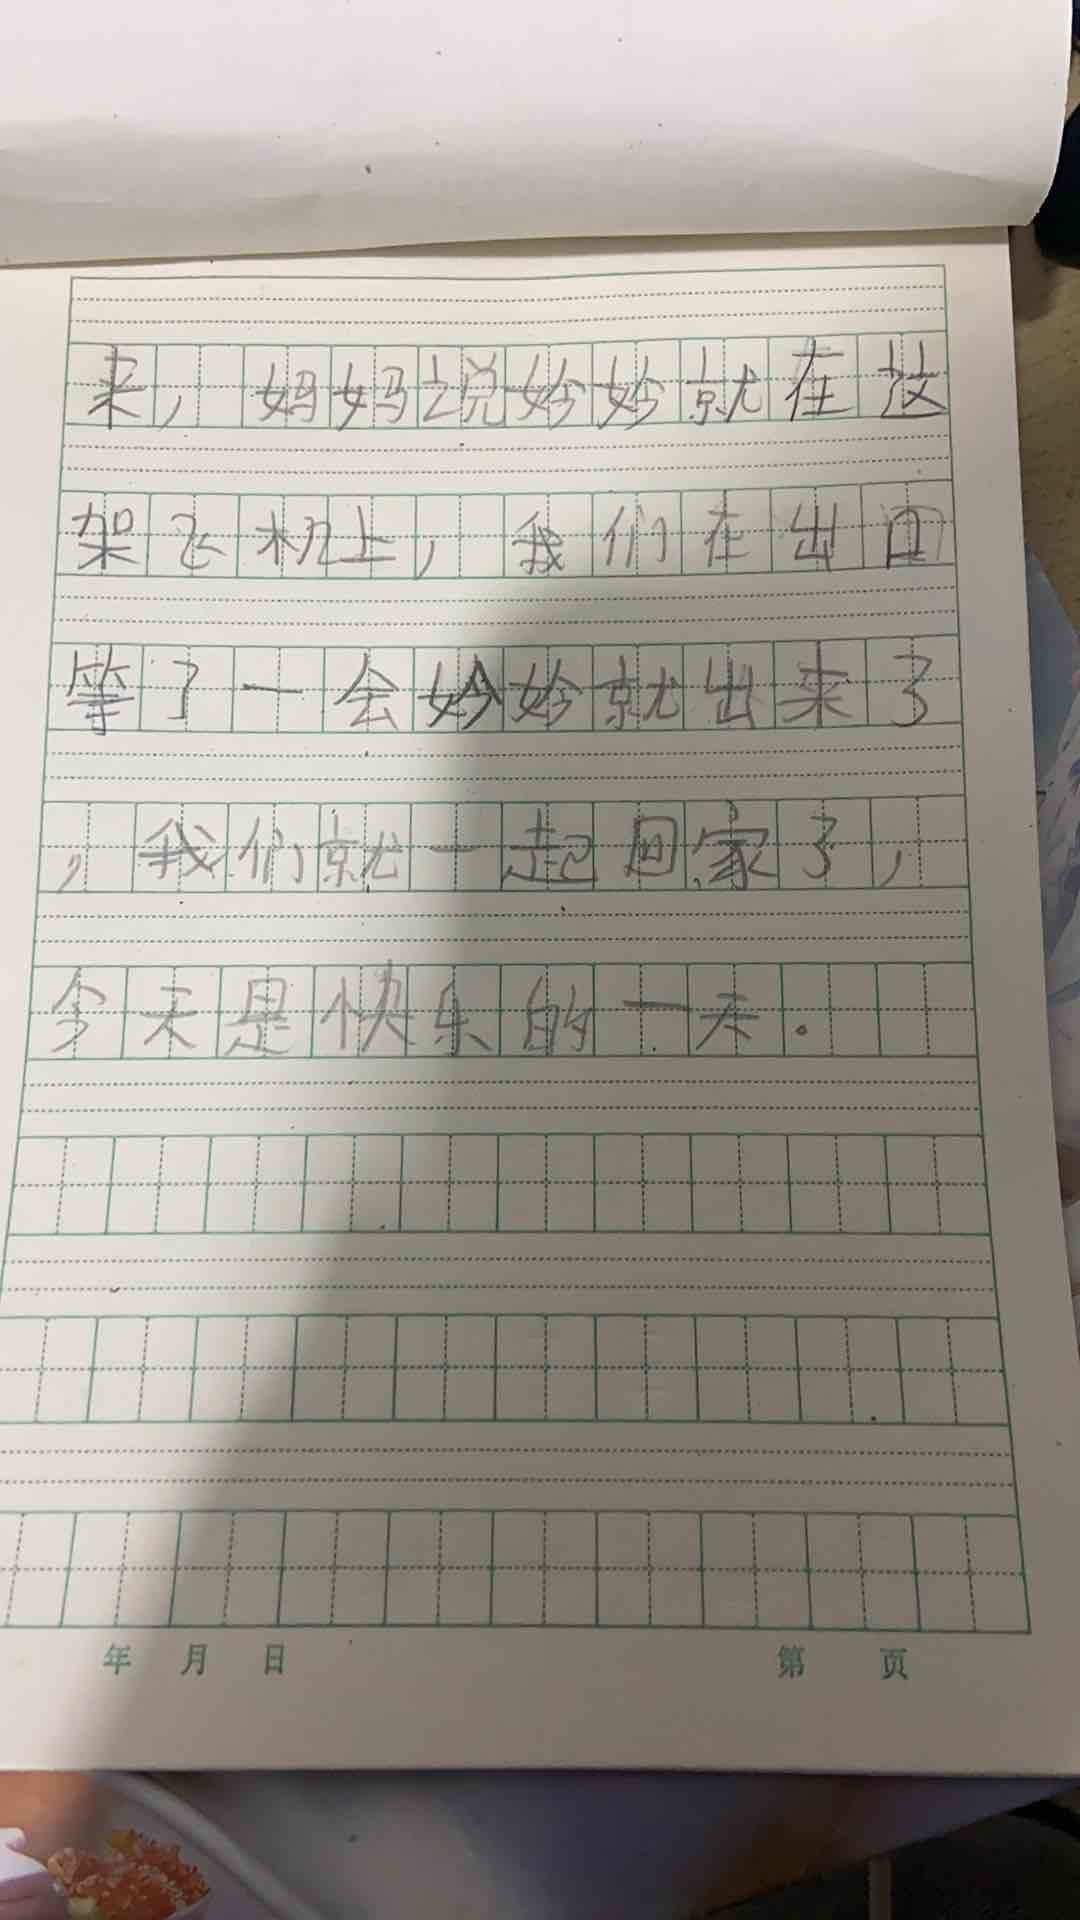 来，妈妈说妙妙就在这
架飞机上，我们在出口
等了一会妙妙就出来了
，我们就一起回家了，
今天是快乐的一天。
年 月 日 第 页